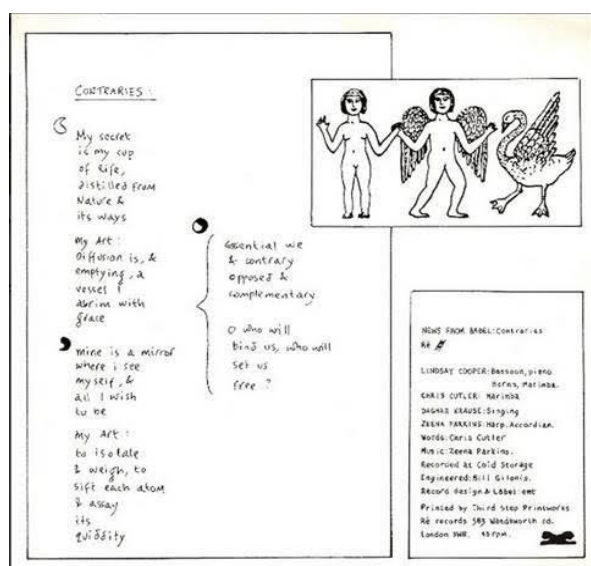 CONTRARIES :
My secret
is my cup
of life,
distilled from
Nature &
its ways
My Art :
Diffusion is, &
emptying, a
vessel
abrim with
grace
mine is a mirror
where i see
myself, &
all I wish
to be
My Art :
to isolate
& weigh, to
sift each atom
& assay
its
quiddity
essential we
& contrary
opposed &
complementary
O who will
bind us, who will
set us
free ?
NEWS FROM BABEL: Contraries
Rē
LINDSAY COOPER: Bassoon, piano
Horns, Marimba.
CHRIS CUTLER: Marimba
DAGMAR KRAUSE: Singing
ZEENA PARKINS: Harp, Accordian.
Words: Chris Cutler
Music: Zeena Parkins.
Recorded at Cold Storage
Engineered: Bill Gilonis.
Record design & Label: emt
Printed by Third Step Printworks.
Rē records 583 Wandsworth rd.
London SW8. 45rpm.